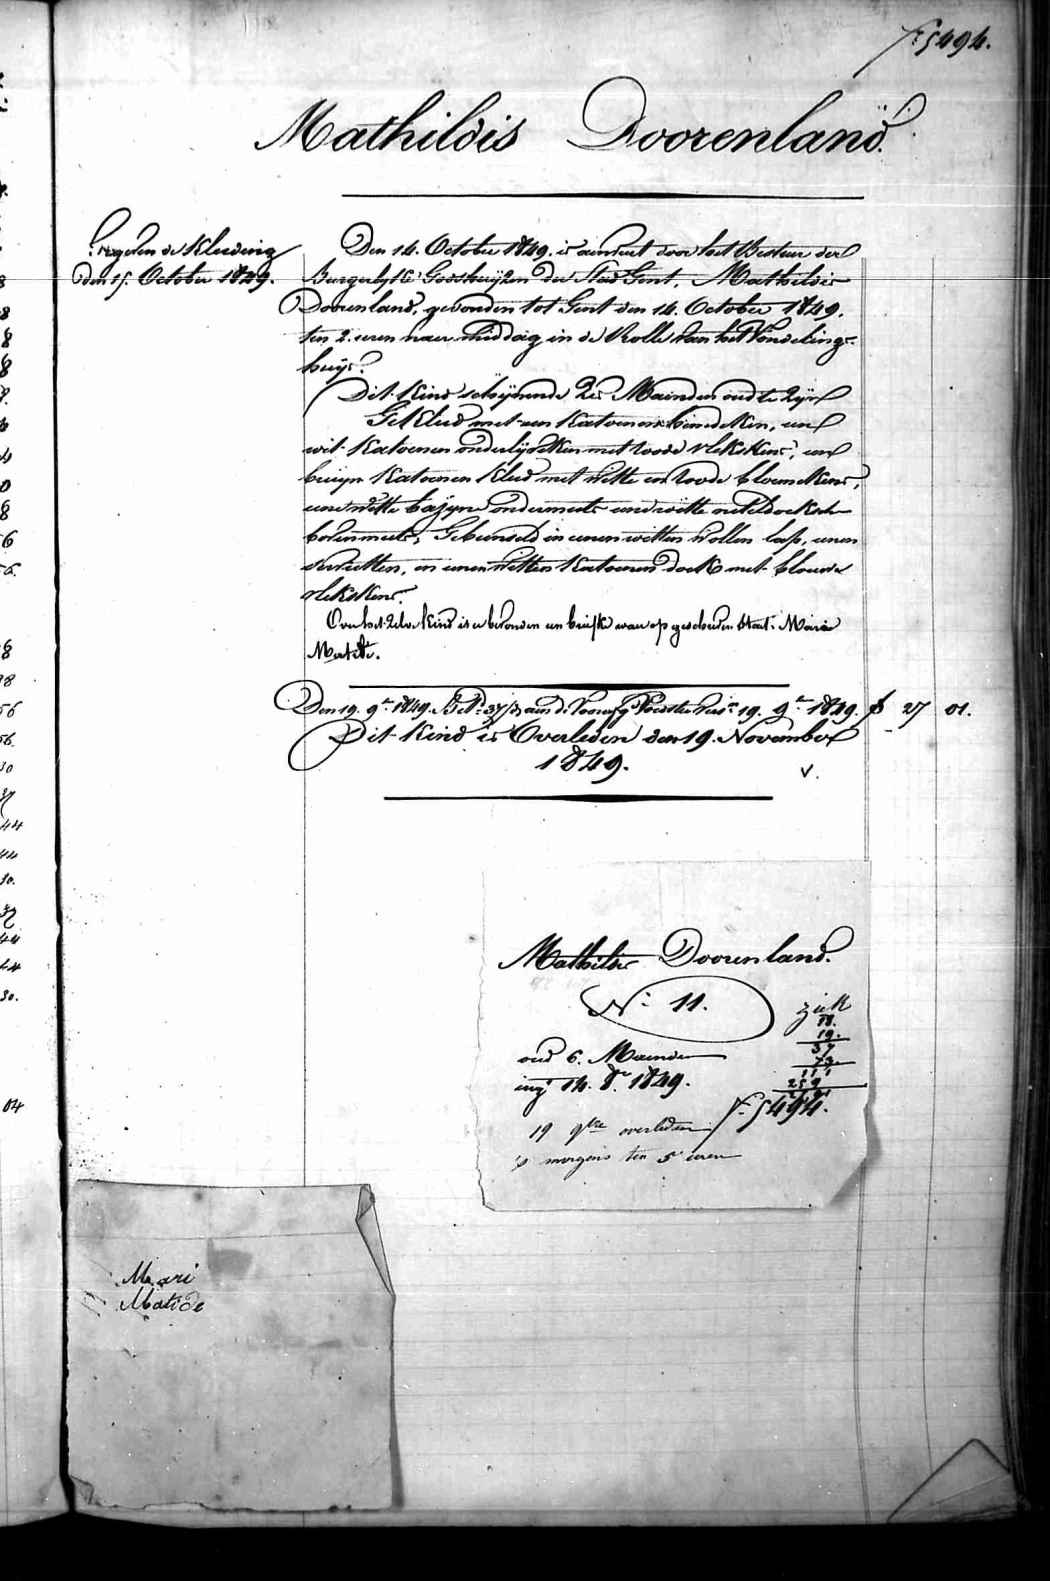 F° 5494.
Mathildis Doorenland.
den 15. October 1849.
Den 14. October 1849. is aenveert door het Bestuer der
Burgerlyke Godshuyzen der Stad Gent, Mathildis
Doorenland, gevonden tot Gent den 14. October 1849.
ten 2. uren naer middag, in de Rolle van het Vondelings-
huys.
Dit Kind schynende Zes Mainden oud te Zyn
Gekleed met een Katoenen hemdeken, een
wit Katoenen onderlyveken met roode vlekskens, een
bruyn Katoenen kleed met witte en roode bloemekens,
eene witte bazyne ondermuts eene witte neteldoeksche
bovenmuts, Gebunseld in eenen witten Wollen lap, eenen
servietten, en eenen witten Katoenen doek met blouwe
vlekskens.
Over het Zelve kind is er bevonden een briefke waer op geschreven staet. Marie
Matilde.
Den 19. 9bre 1849. 19. 9bre 1849. 27 01.
Dit Kind is Overleden den 19. November
1849.
V.
Mathildis Doorenland.
N° 11.
ziek
18.
19.
37
73
111
259
oud 6. Maenden
ing. 14. 8bre 1849.
F° 5494.
19 9bre overleden
's morgens ten 5 uren
Mari
Matide